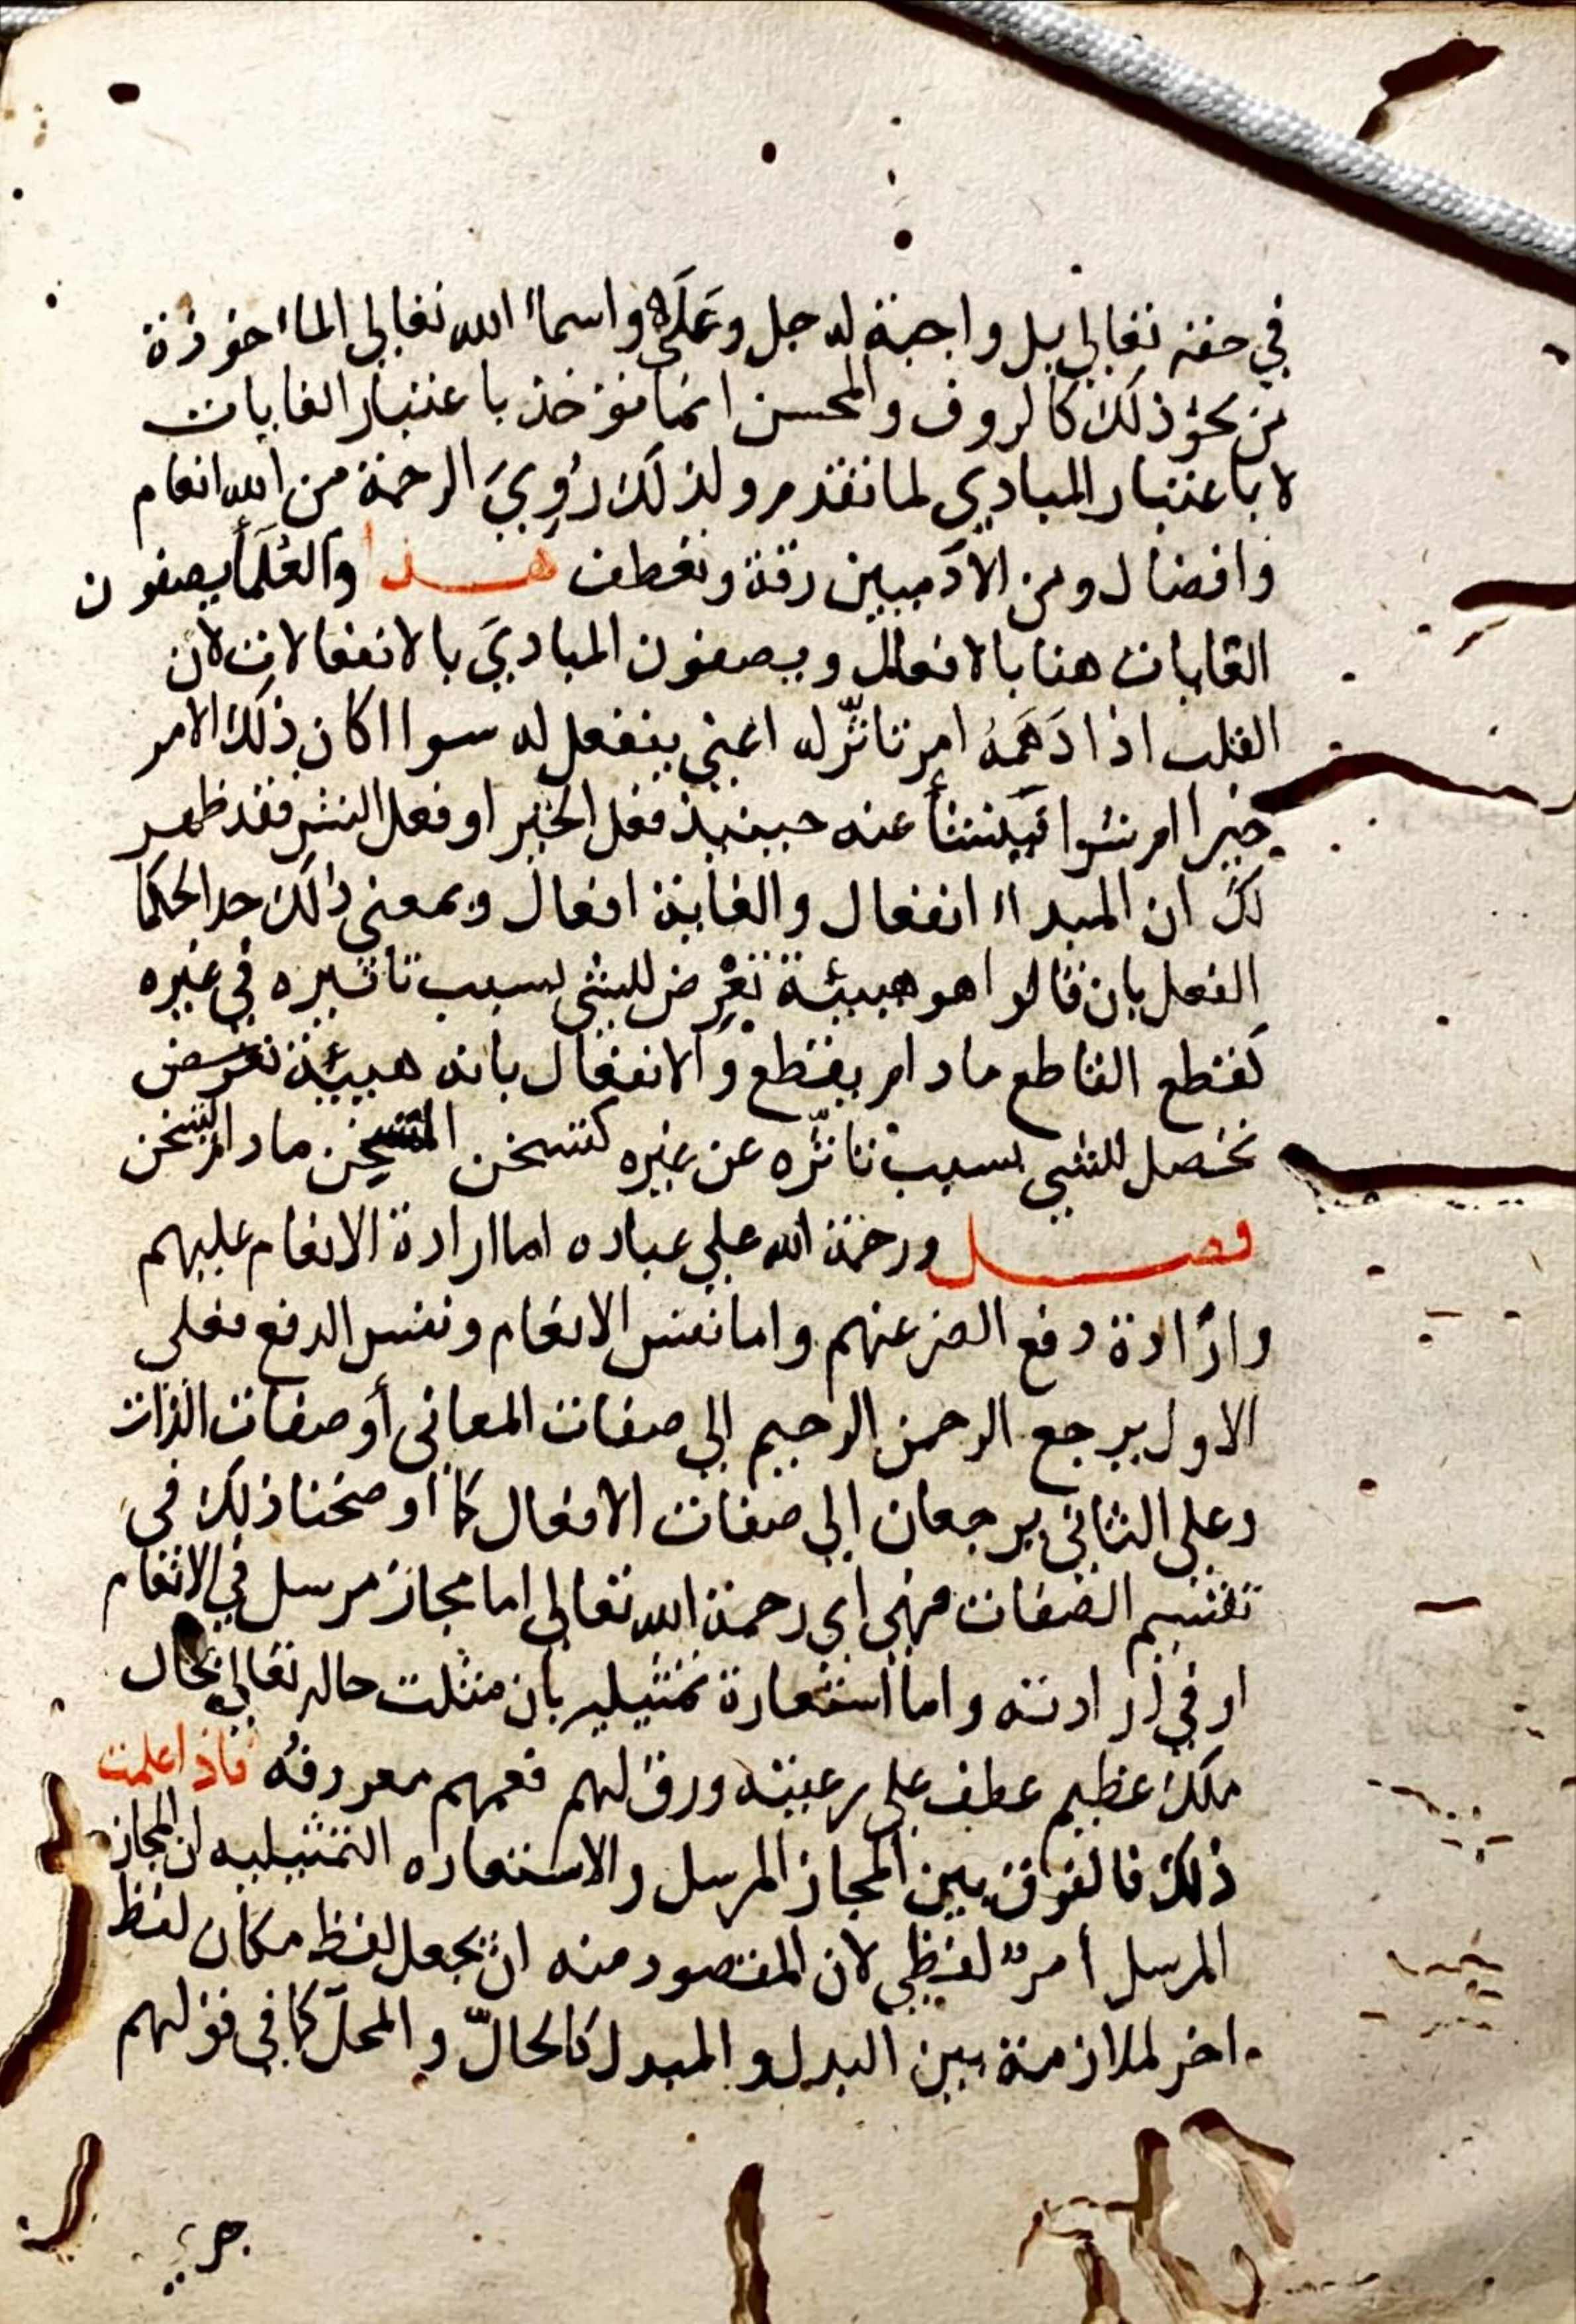 في حقه تعالى بل واجبة له جل وعلاه واسماء الله تعالى الماءخوذة
من نحو ذلك كالروف والمحسن انما تؤخذ باعتبار الغايات
لا باعتبار المبادي لما تقدم ولذلك رُوِيَ الرحمة من الله انعام
وافضال ومن الآدميين رقة وتعطف هذا والعُلَمَا يصفون
الغايات هنا بالافعال ويصفون المباديَ بالانفعالات لان
القلب اذا دَهَمَهُ امر تاثّر له اعني ينفعل له سوا اكان ذلك الامر
خيرا ام شرا فينشأ عنه حينيذ فعل الخير او فعل الشر فقد ظهر
لك ان المبداء انفعال والغاية افعال وبمعنى ذلك حد الحكما
الفعل بان قالوا هو هيئة تعْرِض للشي بسبب تاثيره في غيره
كقطع القاطع ما دام يقطع والانفعال بانه هيئة تعرض
تحصل للشي بسبب تاثّره عن غيره كتسخن المتسخن ما دام يتسخن
فصل ورحمة الله على عباده اما ارادة الانعام عليهم
وارادة دفع الضر عنهم واما نفس الانعام ونفس الدفع فعلى
الاول يرجع الرحمن الرحيم الي صفات المعاني أو صفات الذات
وعلى الثاني يرجعان الي صفات الافعال كما أوضحنا ذلك في
تقسيم الصفات فهي اي رحمة الله تعالى اما مجاز مرسل في الانعام
او في ارادته واما استعارة تمثيليه بان مثلت حاله تعالي بحال
ملك عظيم عطف على رعيته ورق لهم فعمهم معروفُه فاذا علمت
ذلك فالفرق بين المجاز المرسل والاستعاره التمثيليه ان المجاز
المرسل أمرٌ لفظي لان المقصود منه ان يجعل لفظ مكان لفظ
اخر لملازمة بين البدل والمبدل كالحالّ والمحلّ كما في قولهم
جري